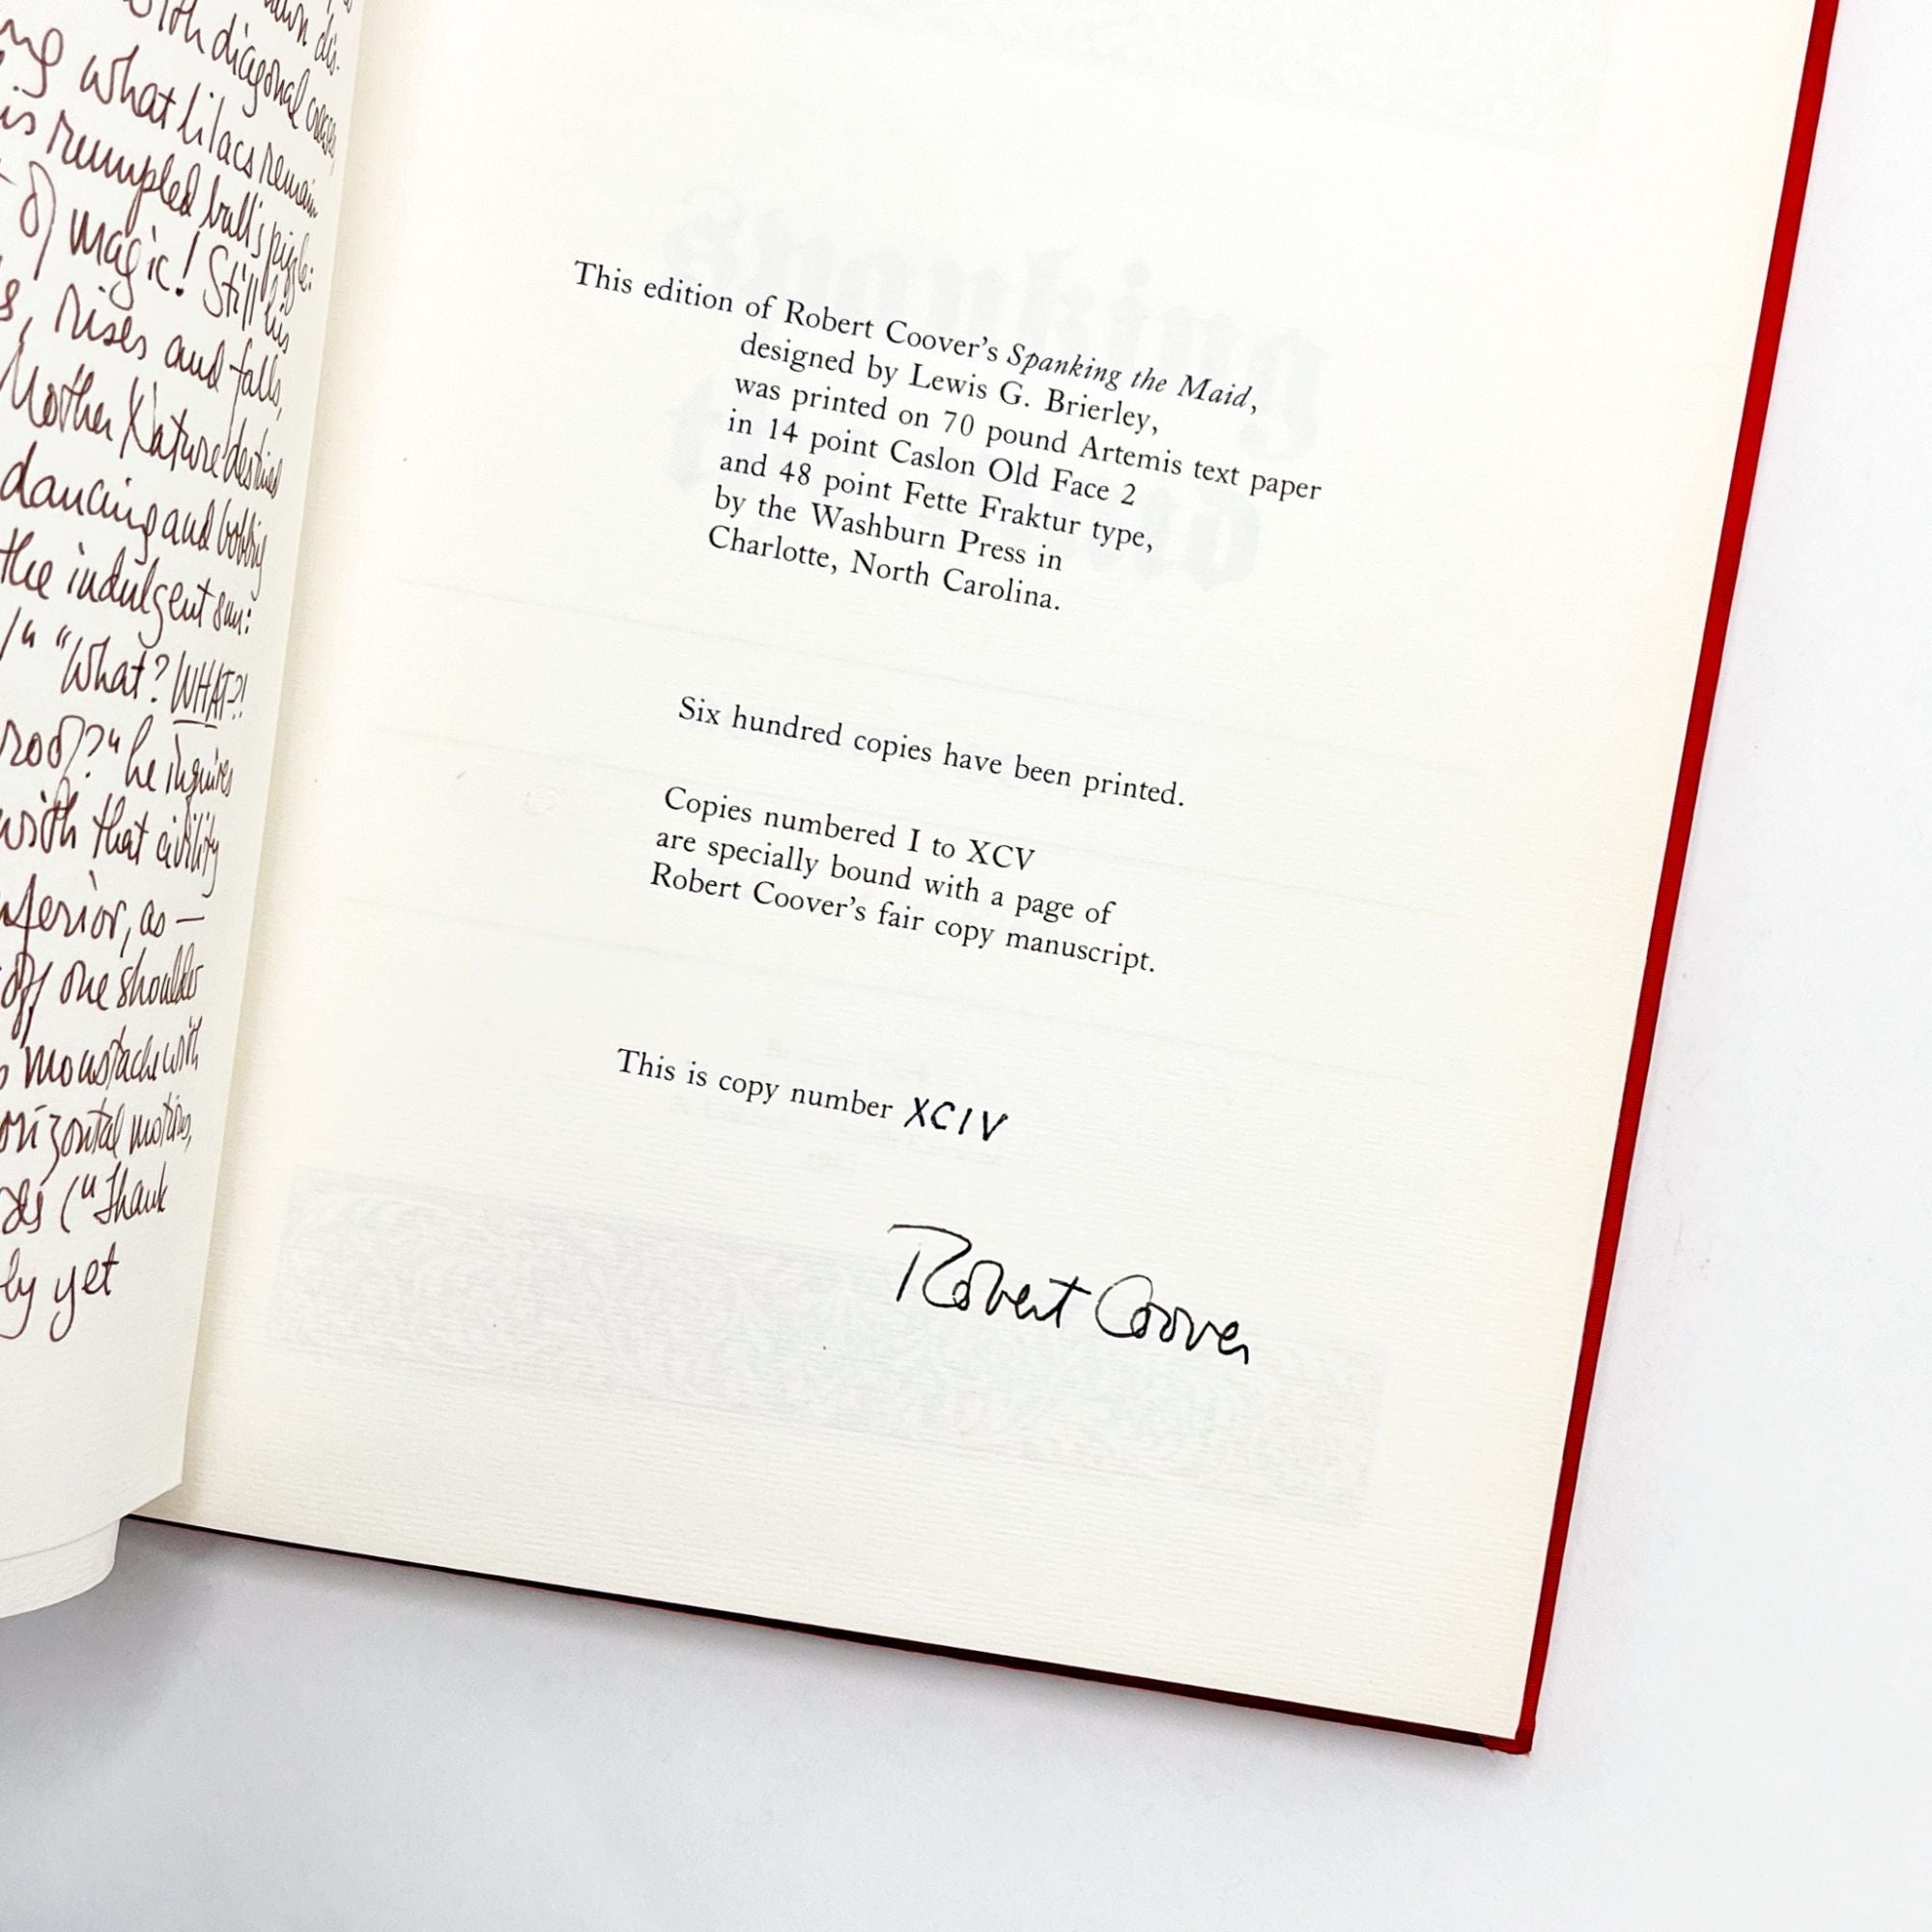 dis-
with diagonal creases,
what lilacs remain
is rumpled bull's pizzle:
of magic! Still his
rises and falls,
Mother Nature destined
dancing and bobbing
the indulgent sun:
"What? WHAT?!
he inquires
with that civility
inferior, as —
off one shoulder
moustache with
horizontal motions,
("Thank
yet
This edition of Robert Coover's Spanking the Maid,
designed by Lewis G. Brierley,
was printed on 70 pound Artemis text paper
in 14 point Caslon Old Face 2
and 48 point Fette Fraktur type,
by the Washburn Press in
Charlotte, North Carolina.
Six hundred copies have been printed.
Copies numbered I to XCV
are specially bound with a page of
Robert Coover's fair copy manuscript.
This is copy number XCIV
Robert Coover